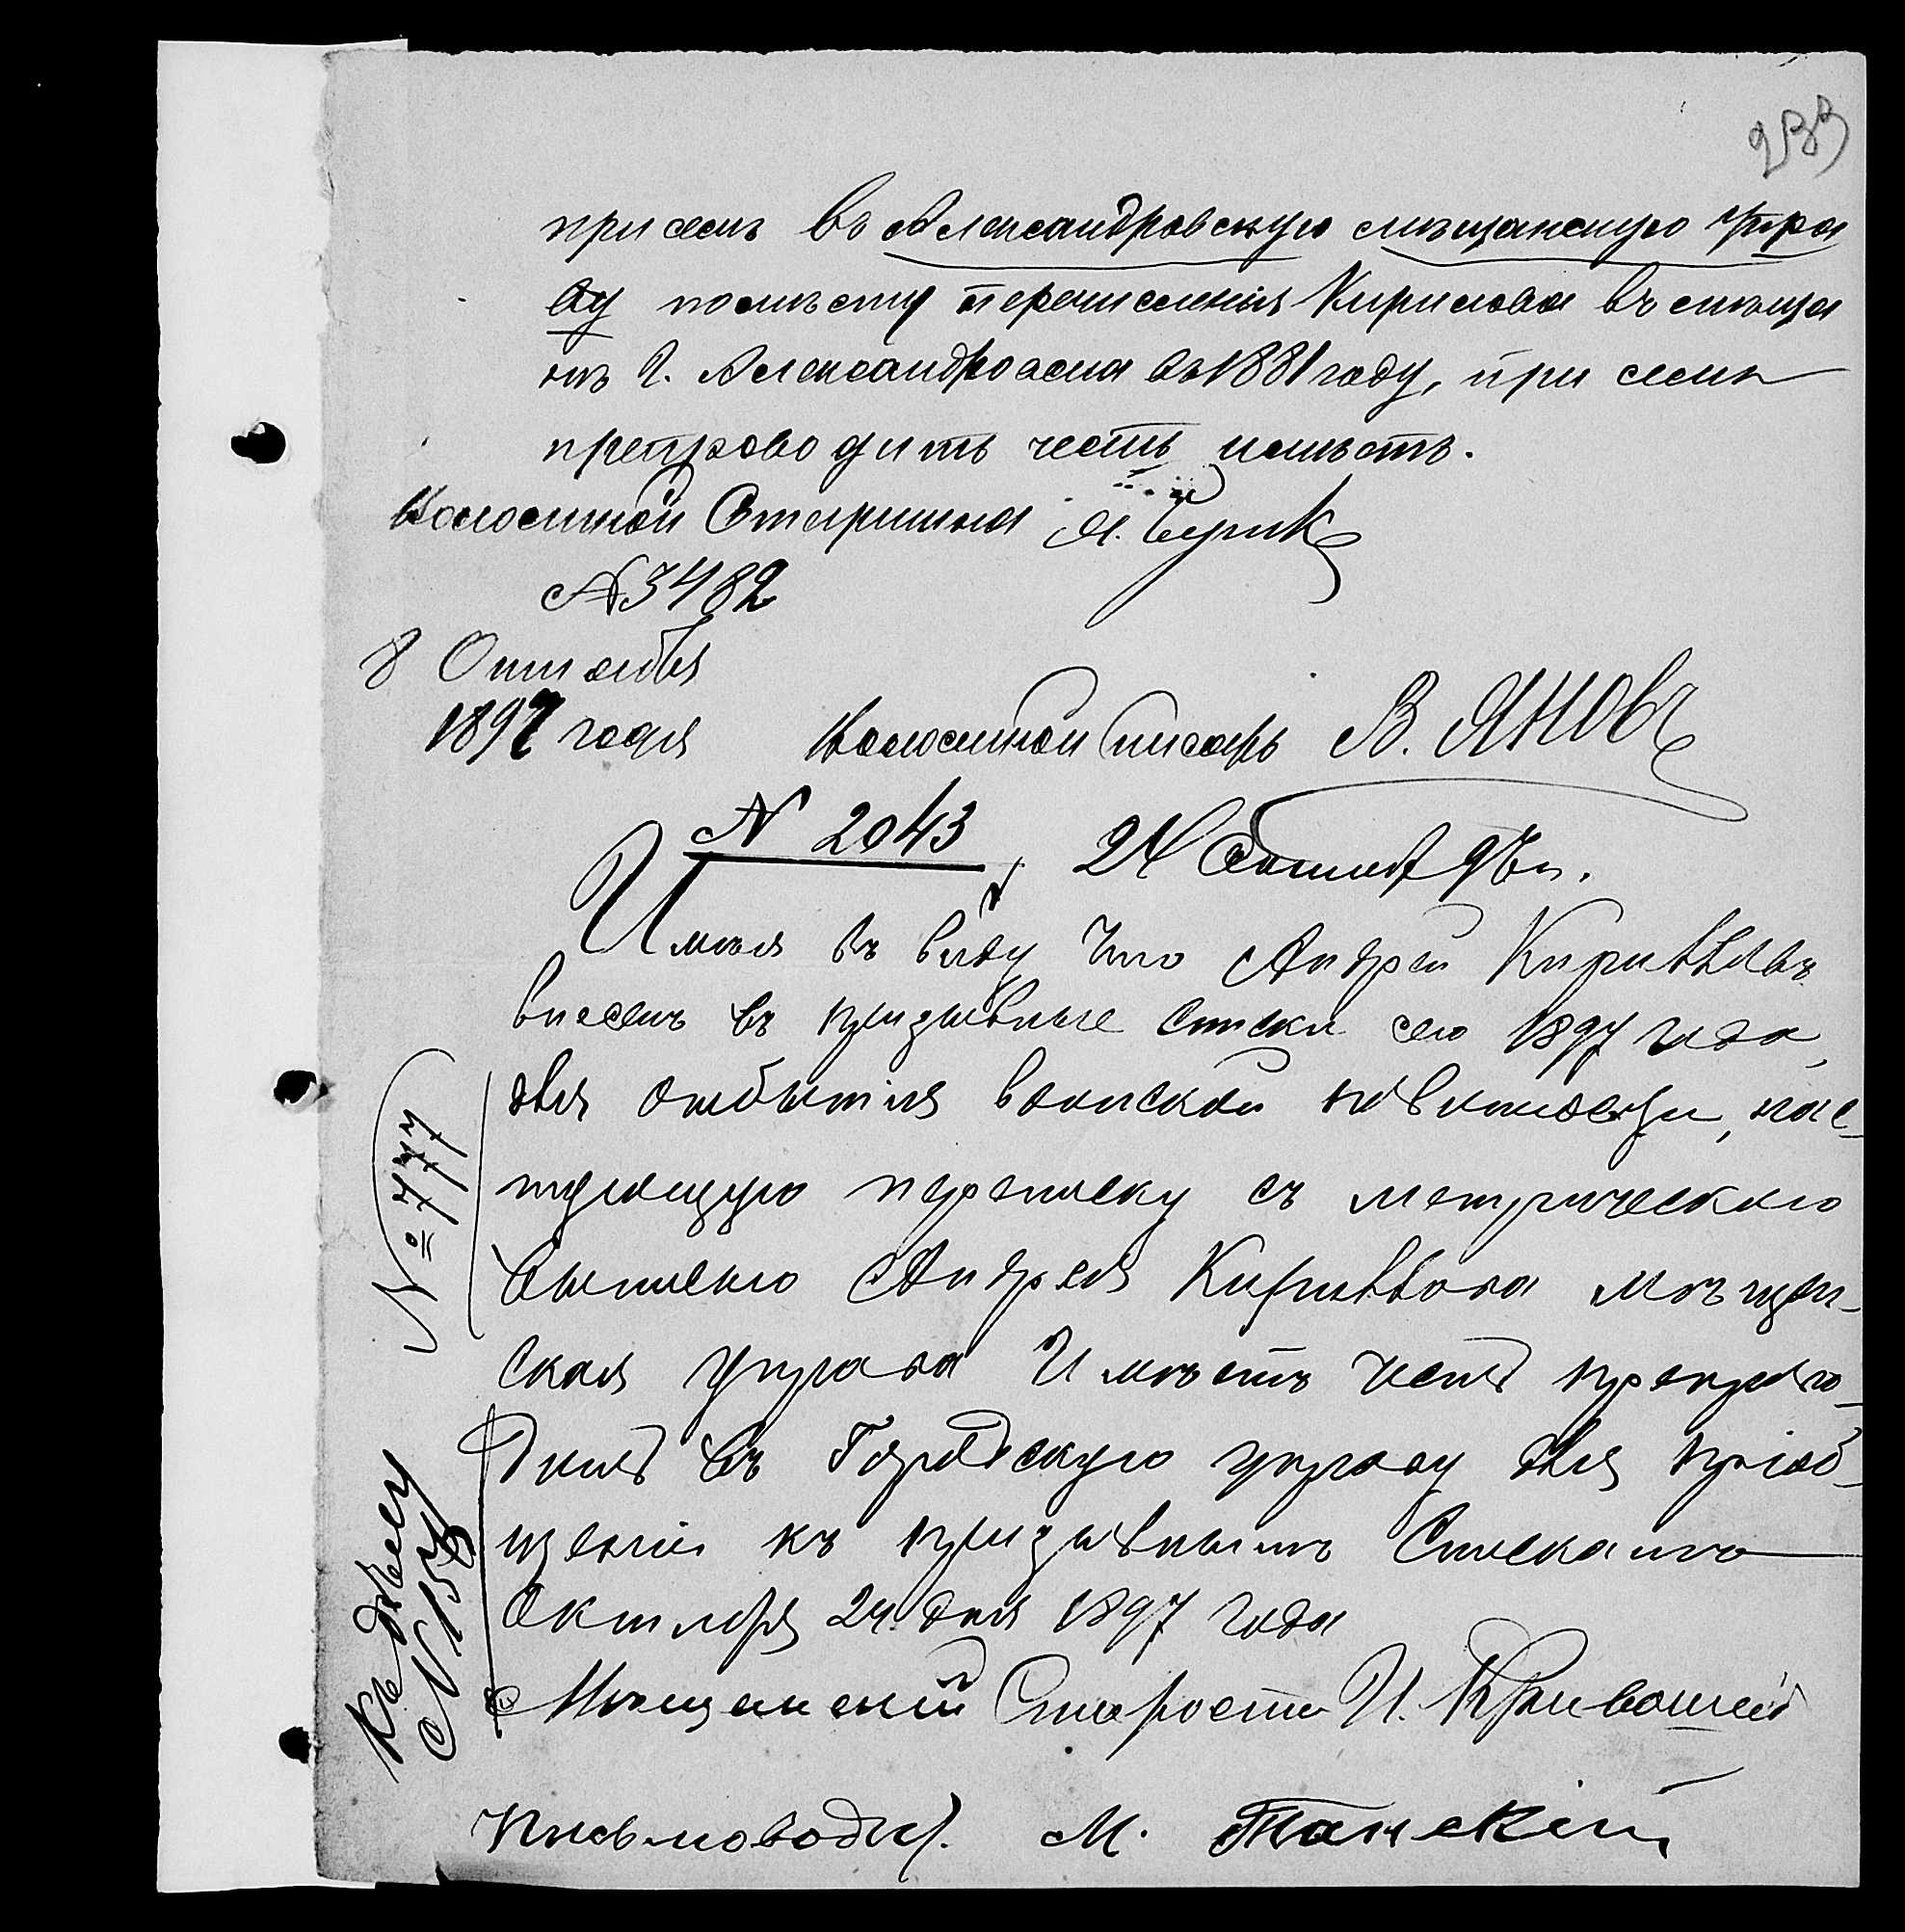 233
при семъ въ Александровскую мѣщанскую Упра
ву по мѣсту перечисленія Кирилова въ мѣща
нѣ г. Александровска въ 1881 году, при семъ
препроводить честь имѣетъ.
Волостной Старшина
№ 3482
8 Октября
1897 года Волостной писарь В. Яновъ
№ 2043 24 97 г.
Имѣя въ виду что Андрей Кирилловъ
внесенъ въ призывные списки сего 1897 года,
для отбытія воинской повинности, нас-
тоящую переписку съ метрическою
выписью Андрея Кириллова мѣщан-
ская управа имѣетъ честь препрово-
дить въ Городскую управу для пріоб-
щенія къ призывнымъ Спискамъ
Октября 24 дня 1897 года
Мѣщанскій Староста И. Кривошей
Письмовод. М. Танскій
№ 777
Къ дѣлу
№ 156